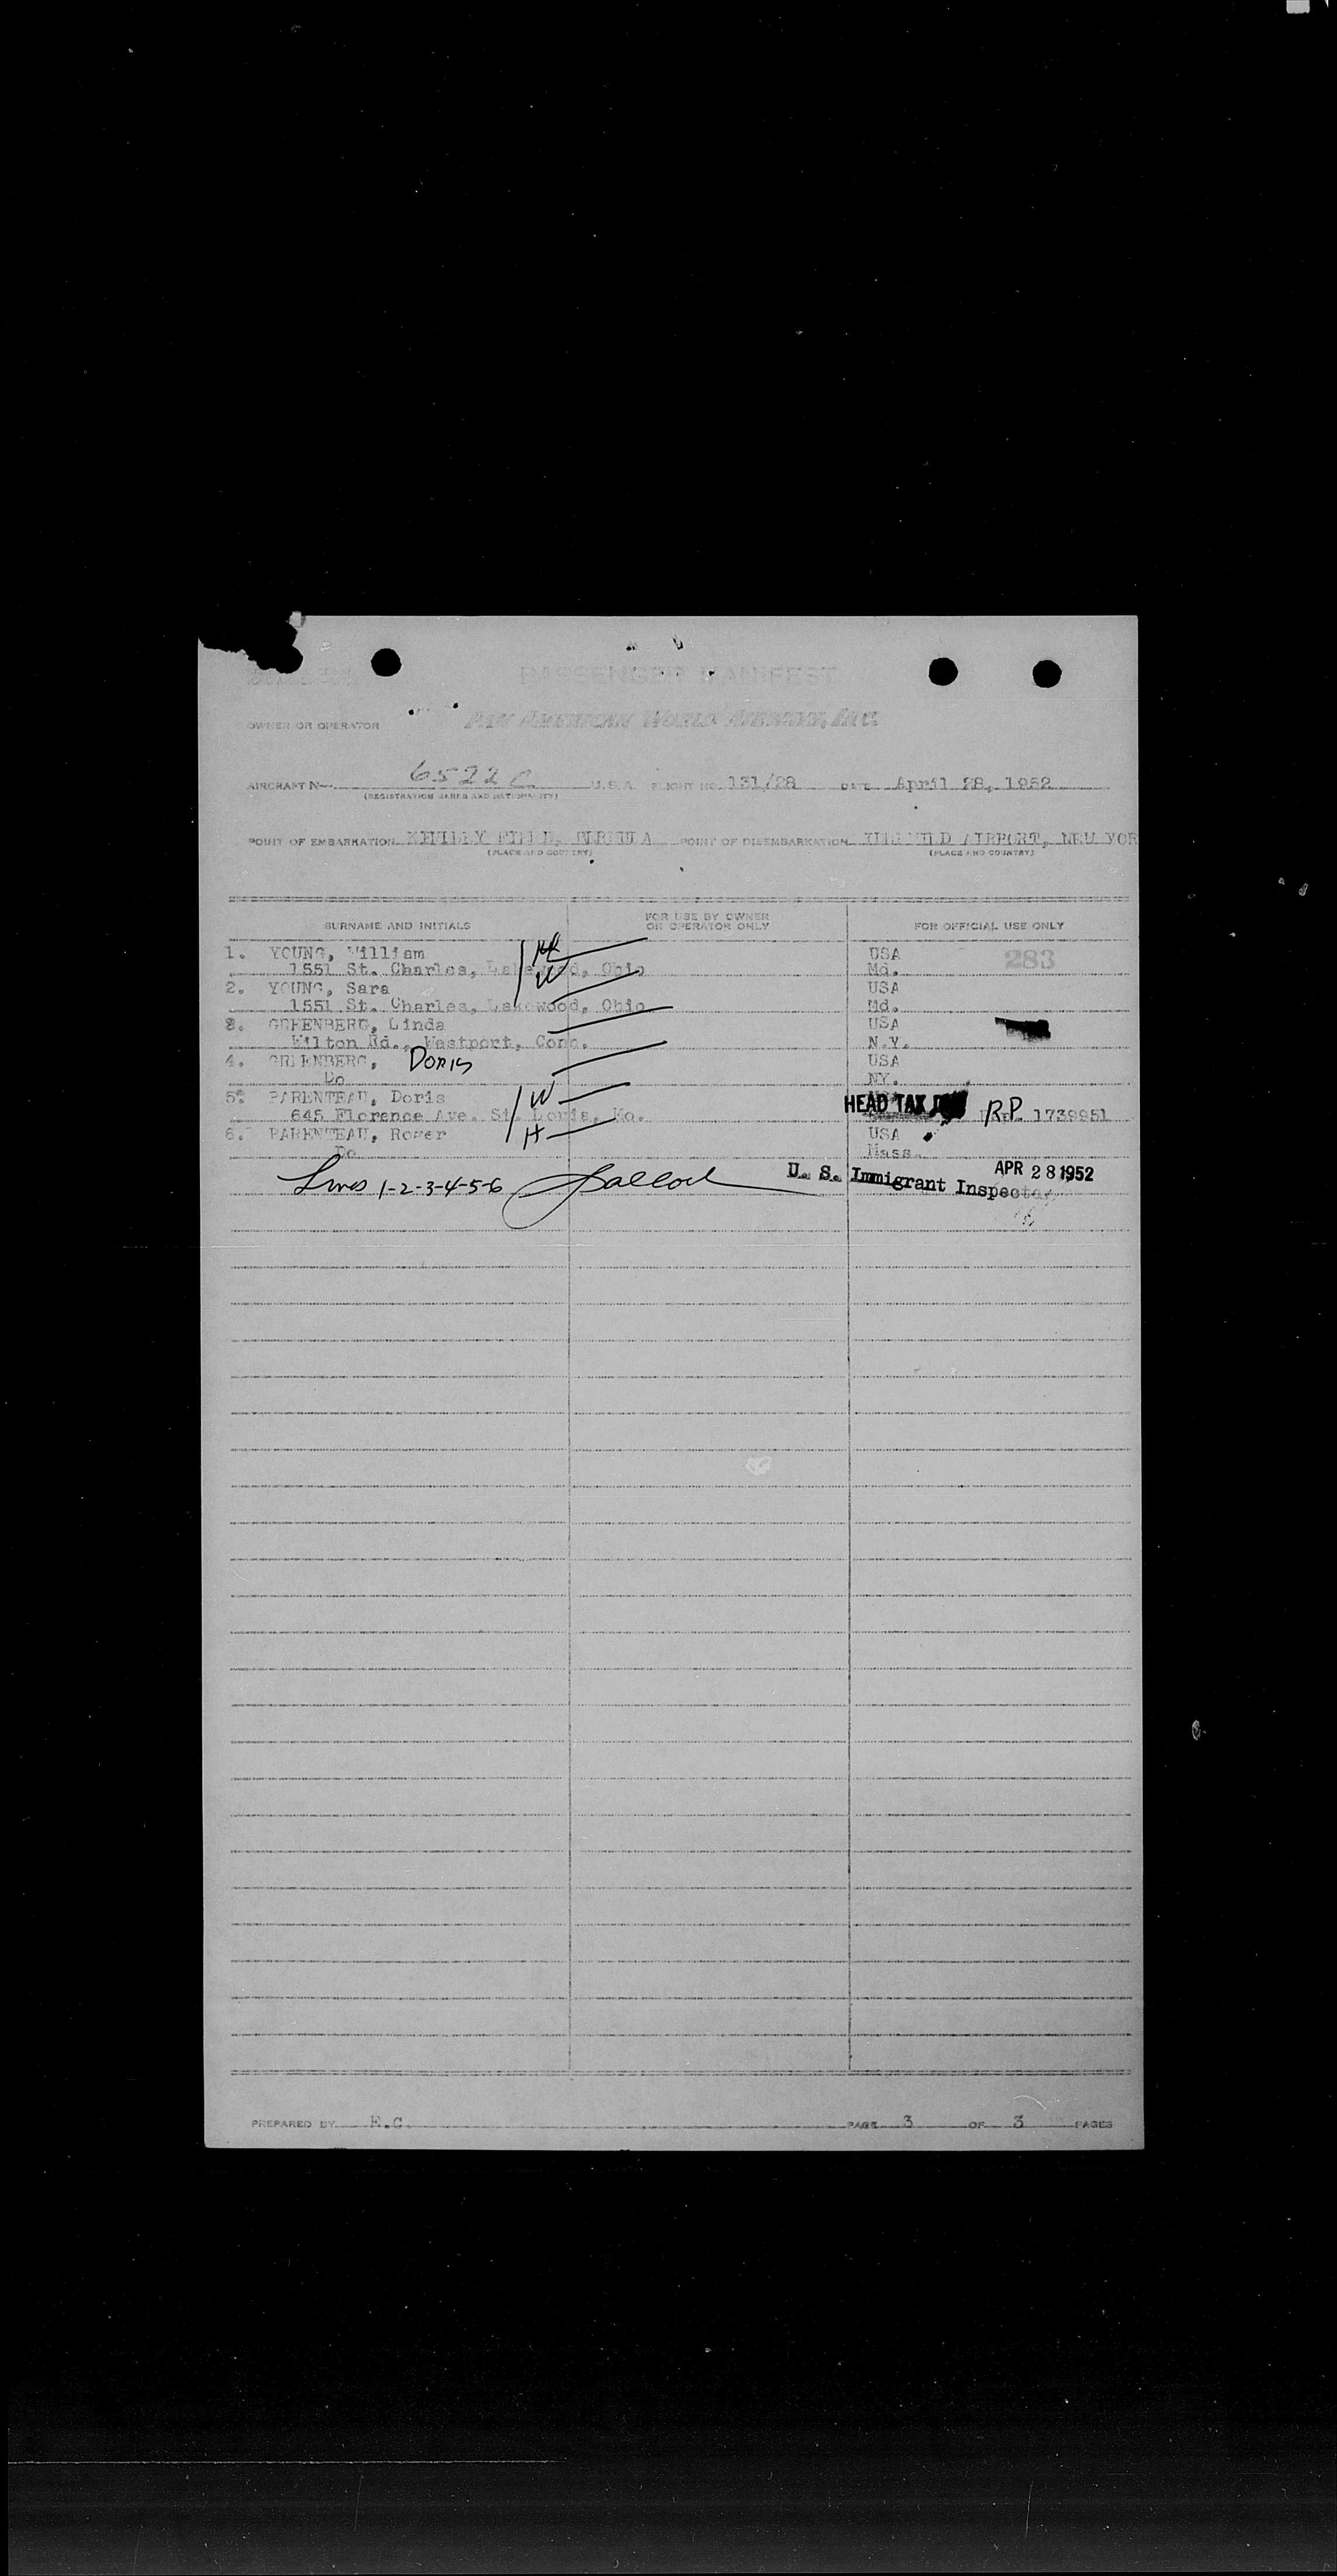 PASSENGER MANIFEST
OWNER OR OPERATOR PAN AMERICAN WORLD AIRWAYS, INC.
AIRCRAFT N- 6522C U.S.A. FLIGHT NO. 131/28 DATE April 28, 1952
(REGISTRATION MARKS AND NATIONALITY)
POINT OF EMBARKATION KINDLEY FIELD, BERMUDA POINT OF DISEMBARKATION IDLEWILD AIRPORT, NEW YOR
(PLACE AND COUNTRY) (PLACE AND COUNTRY)
SURNAME AND INITIALS FOR USE BY OWNER OR OPERATOR ONLY FOR OFFICIAL USE ONLY
1. YOUNG, William H USA 283
1551 St. Charles, Lakewood, Ohio W Md.
2. YOUNG, Sara USA
1551 St. Charles, Lakewood, Ohio Md.
3. GREENBERG, Linda USA
Wilton Rd., Westport, Conn. N.Y.
4. GREENBERG, DORIS USA
Do NY.
5. PARENTEAU, Doris W
HEAD TAX RP
645 Florence Ave. St. Louis, Mo. 1739951
6. PARENTEAU, Roger H USA
Do Mass.
Lines 1-2-3-4-5-6 U. S. Immigrant Inspector APR 28 1952
PREPARED BY E.C. PAGE 3 OF 3 PAGES